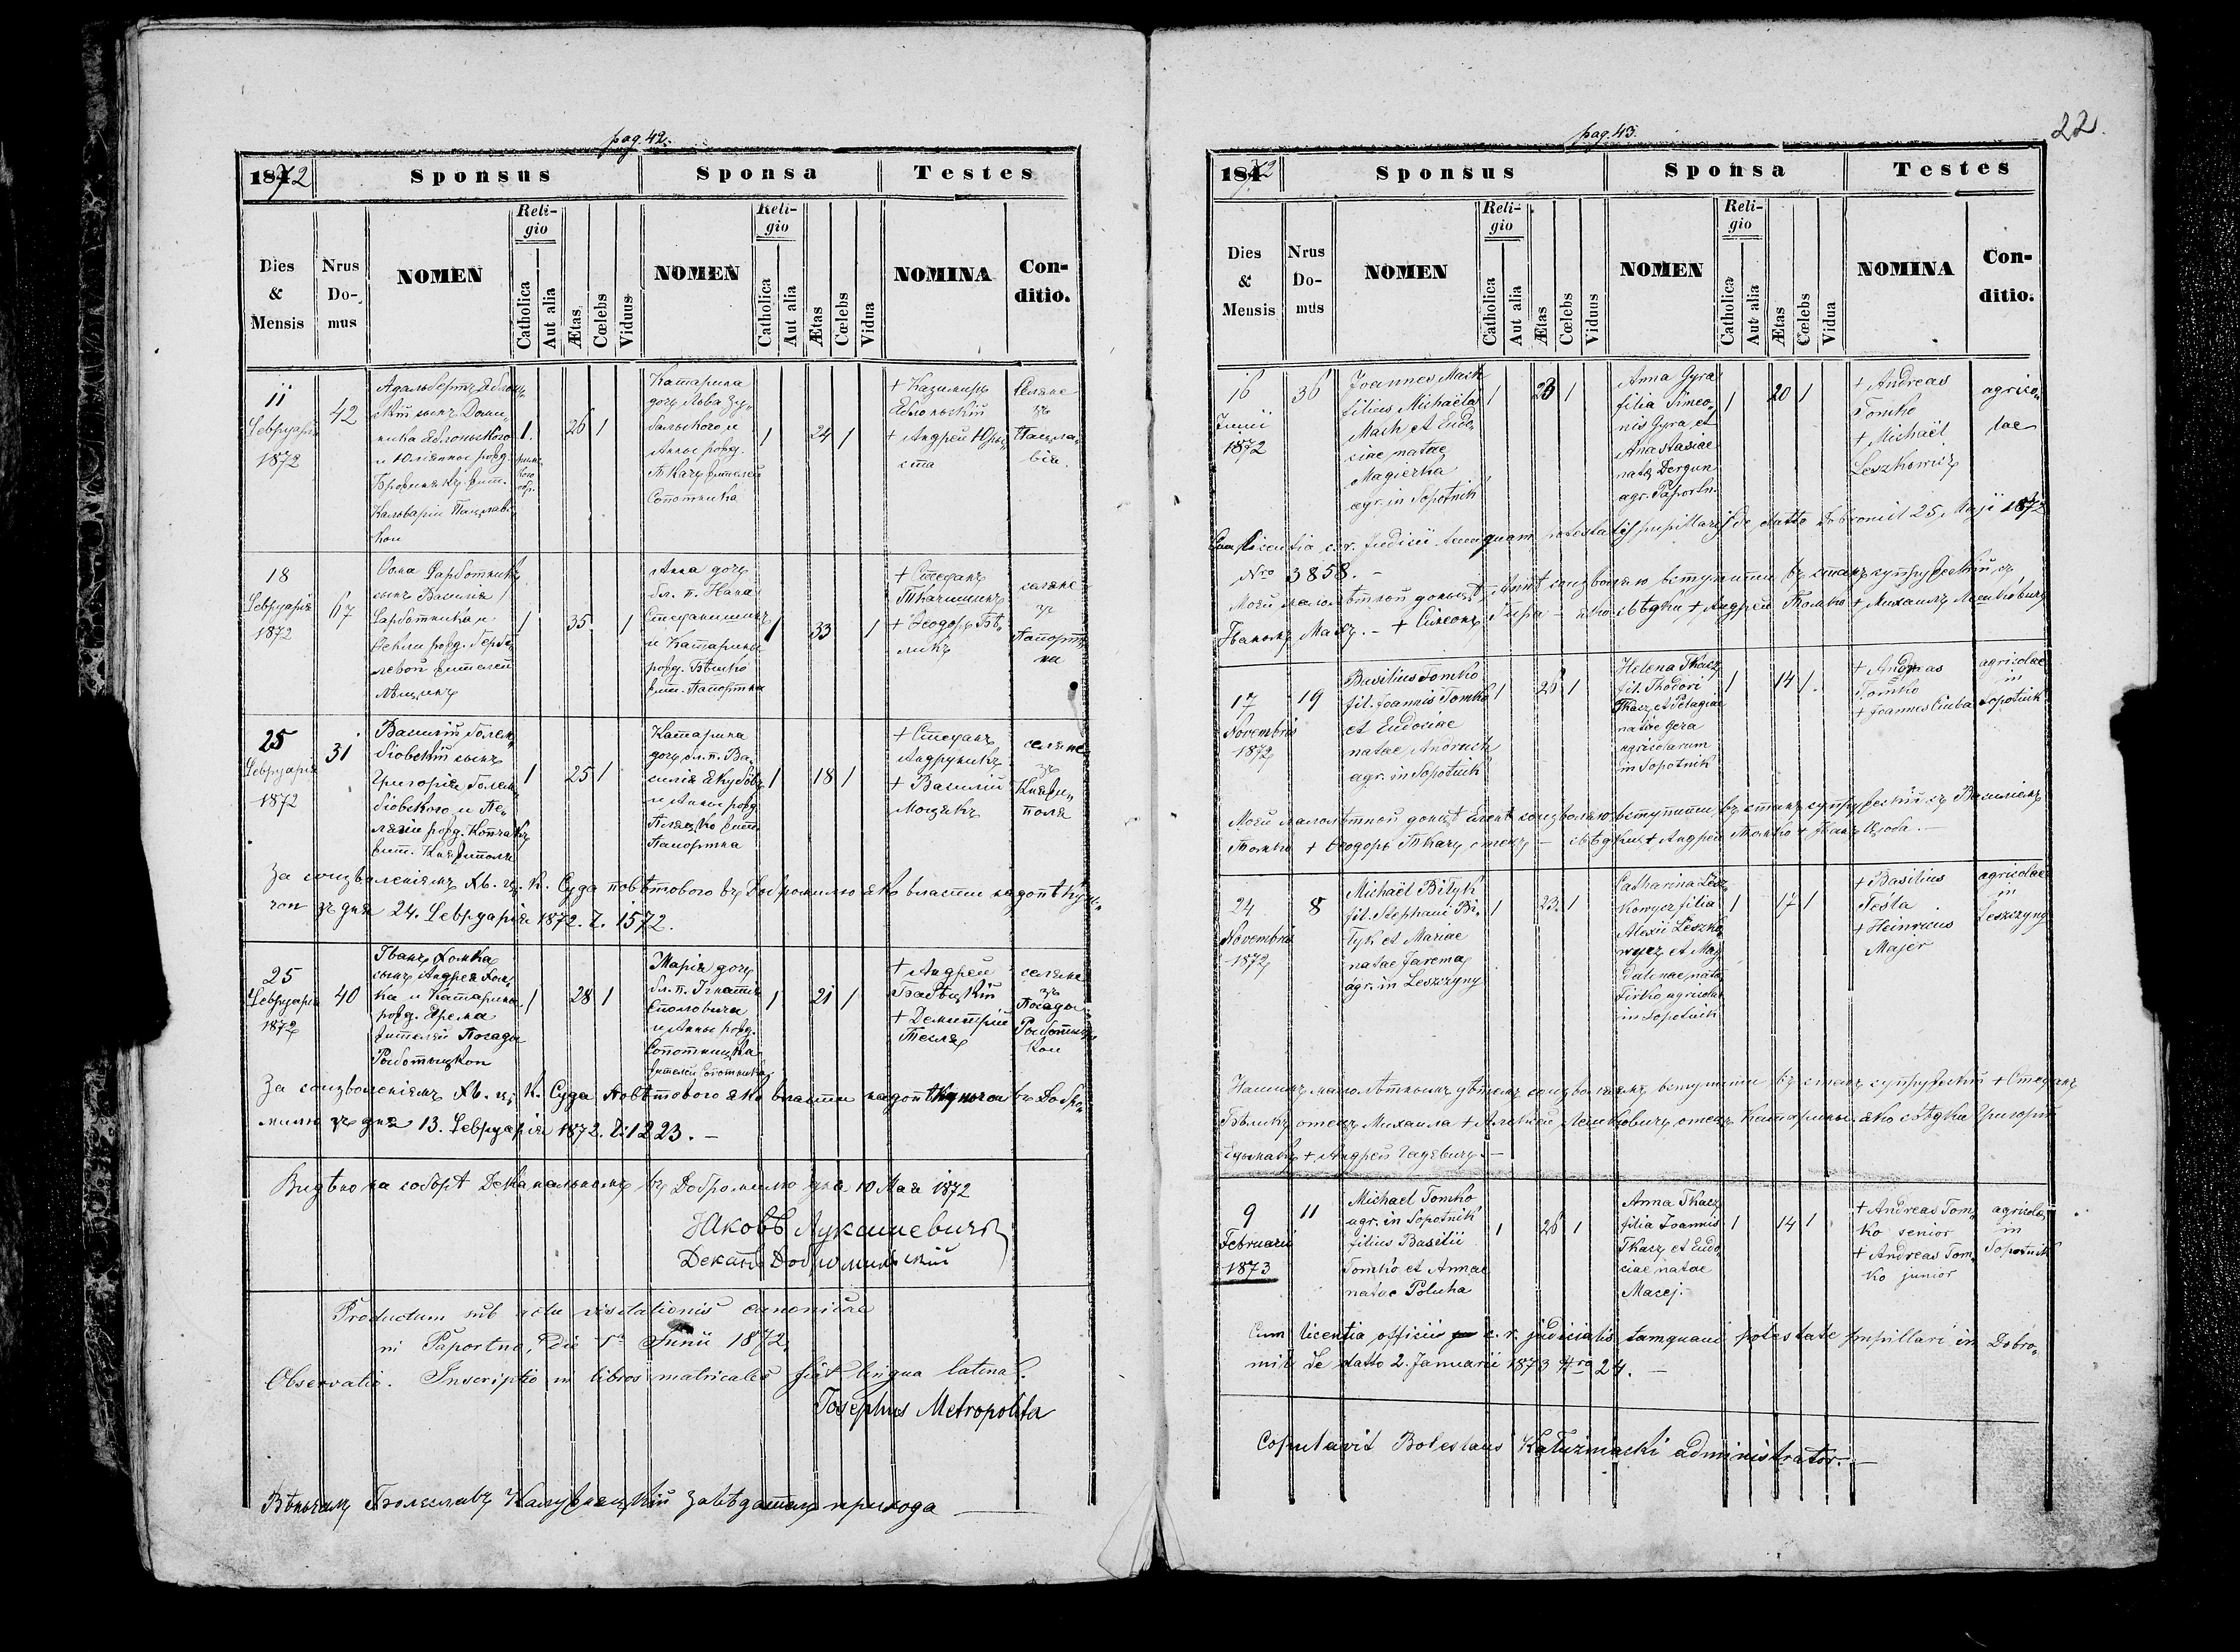 pag. 42.
1872
Sponsus
Sponsa
Testes
Dies & Mensis
Nrus Domus
NOMEN
Religio
Catholica
Aut alia
Ætas
Cœlebs
Viduus
NOMEN
Religio
Catholica
Aut alia
Ætas
Cœlebs
Vidua
NOMINA
Conditio.
11
Февруарія
1872
42
Адальбертъ Яблонь
скій сынъ Доми
ника Яблоньского
и Юліянны рожд.
жит.
Кальваріи Пацлав
кои
1.
26
1
Катарина
дочь Льва
и
Анны рожд.
Ткачъ жителей
Сопотника
1
24
1
+ Казимиръ
Яблоньскій
+ Андрей
селяне
зъ
Пацла
18
Февруарія
1872
67
сынъ Василія
и
рожд.
жителей
1
35
1
Анна дочь
бл. п.
и Катарины
рожд. Бѣлико
жит. Папортна
1
33
1
+ Стефанъ
+ Ѳеодоръ Бѣ
ликъ
селяне
зъ
Папорт
на
25
Февруарія
1872
31
Василій Голем
біовскій сынъ
Григорія Голем
біовского и Пе
лагіи рожд.
жит. Княжполя
1
25
1
Катарина
дочь бл. п. Ва
силія
и Анны рожд.
жит.
Папортна
1
18
1
+ Стефанъ
Андрухикъ
+ Василій
селяне
зъ
Княж
поля
За соизволеніемъ Хв. ц. к. Суда повѣтового въ Добромилю яко власти надопѣкун
чои зъ дня 24. Февруарія 1872. Ч. 1572.
25
Февруарія
1872
40
Іванъ Хомка
сынъ Андрея Хом
ка и Катарины
рожд. Ярема
жителей Посады
Рыботыцкои
1
28
1
Марія дочь
бл. п. Игнатія
и Анны рожд.
жителей Сопотника
1
21
1
+ Андрей
+ Димитрій
Тесля
селяне
зъ
Посады
Рыботыц
кои
За соизволеніемъ Хв. ц. к. Суда повѣтового яко власти надопѣкунчои въ Добро
милю зъ дня 13. Февруарія 1872. Ч. 1223. —
Видѣно на соборѣ Деканальномъ въ Добромилю дня 10 Мая 1872
Яковъ Лукашевичъ
Деканъ Добромильскій
Productum sub actu visitationis canonicae
in Paportno, Die 1a Junii 1872.
Observatio. Inscriptio in libros matricales fiat lingua latina.
Josephus Metropolita
Вѣнчалъ Болеславъ Калужняцкій завѣдатель прихода
22.
pag. 43.
1872
Sponsus
Sponsa
Testes
Dies & Mensis
Nrus Domus
NOMEN
Religio
Catholica
Aut alia
Ætas
Cœlebs
Viduus
NOMEN
Religio
Catholica
Aut alia
Ætas
Cœlebs
Vidua
NOMINA
Conditio.
16
Junii
1872
36
Joannes Mach
filius Michaëla
Mach, et Eudo
ciae natae
Magierka
agr. in Sopotnik
1
23
1
Anna Gyra
filia Simeo
nis Gyra, et
Anastasiae
natae Dergun
agr. Paportn.
1
20
1
+ Andreas
Tomko
+ Michaël
Leszkowicz
agrico
lae
Cum licentia c. r. Judicii tamquam potestatis pupillaris de datto Dobromil 25 Maji 1872
Nro 3858. —
Моей малолѣтной доньцѣ Аннѣ соизволяю вступити въ станъ супружескій съ
Іваномъ Махъ. — + Симеонъ Гыра — яко свѣдки + Андрей Томко + Михаилъ Лешковичъ
17
Novembris
1872
19
Basilius Tomko
fil. Joannis Tomko
et Eudociae
natae Andruch
agr. in Sopotnik
1
25
1
Helena Tkacz
fil. Thodori
Tkacz et Pelagiae
natae Gera
agricolarum
in Sopotnik
1
14
1.
+ Andreas
Tomko
+ Joannes Ciuba
agricolae
in
Sopotnik
Моей малолѣтной доньцѣ Еленѣ соизволяю вступити въ станъ супружескій съ Василіемъ
Томко + Ѳеодоръ Ткачъ отецъ — свѣдки + Андрей Томко + Іванъ Цюба. —
24
Novembris
1872
8
Michaël Bilyk
fil. Stephani Bi
lyk et Mariae
natae Jarema
agr. in Leszczyny
1
23.
1
Catharina Lesz
kowycz filia
Alexii Leszko
wycz et Mag
dalenae natae
Firko agricolae
in Sopotnik
1
17
1
+ Basilius
Festa
+ Heinricus
Majer
agricolae
in
Leszczyny
Нашимъ малолѣтнымъ дѣтемъ соизволяемъ вступити въ станъ супружескій + Стефанъ
Бѣликъ отецъ Михаила + Алексій Лешковичъ отецъ Катарины яко свѣдки Григорій
+ Андрей
9
Februarii
1873
11
Michael Tomko
agr. in Sopotnik
filius Basilii
Tomko et Annae
natae Poluha
1
26
1
Anna Tkacz
filia Joannis
Tkacz et Eudo
ciae natae
Macej.
1
14
1
+ Andreas Tom
ko senior
+ Andreas Tom
ko junior
agricolae
in
Sopotnik
Cum licentia officii c. r. judicialis tamquam potestate pupillari in Dobro
mil de datto 2. Januarii 1873 Nro 24. —
Copulavit Boleslaus Kałużniacki administrator. —